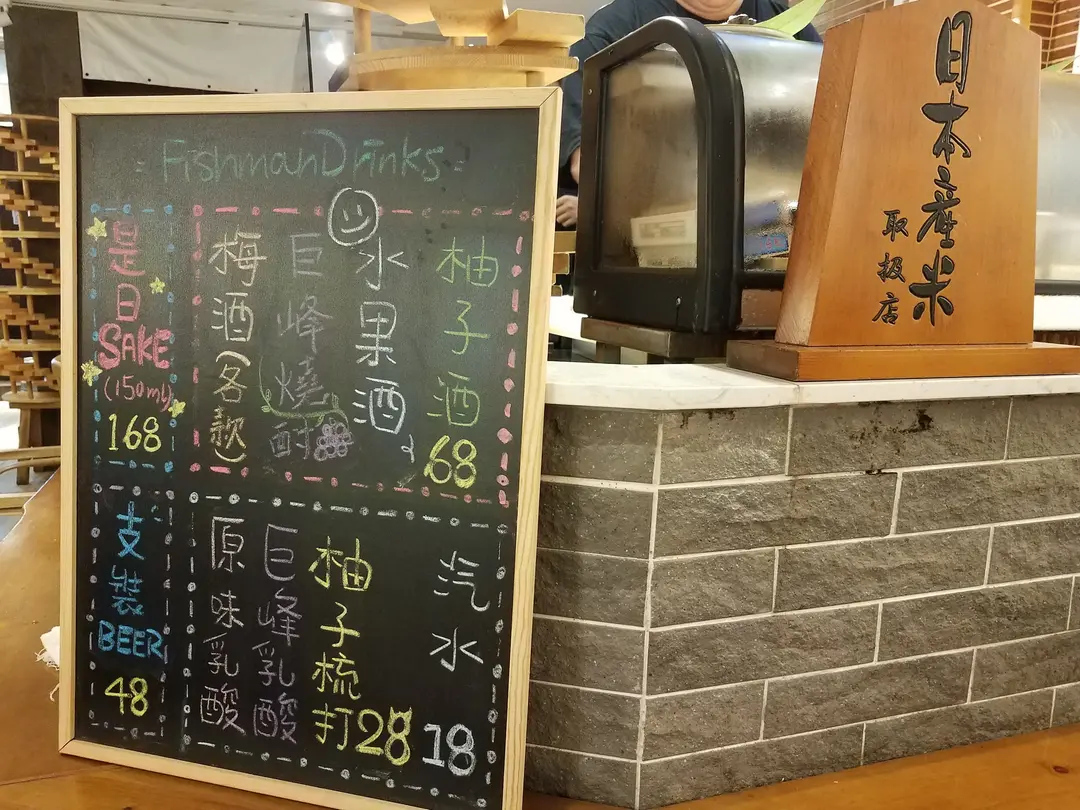 - FishmanDrinks -
是日
SAKE
(150ml)
168
柚子酒
水果酒
巨峰燒酎
梅酒(各款)
68
支裝
BEER
48
汽水
18
柚子梳打28
巨峰乳酸
原味乳酸
日本産米
取扱店